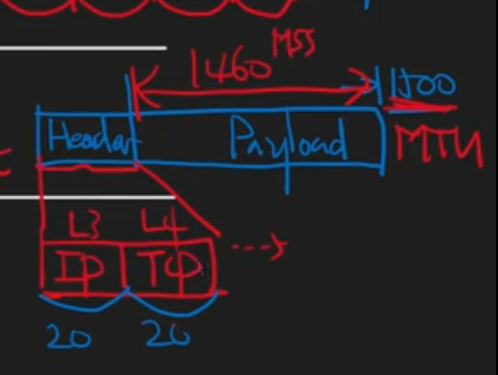 MSS
1460
1500
Header Payload MTU
L3 L4
IP TCP
20 20